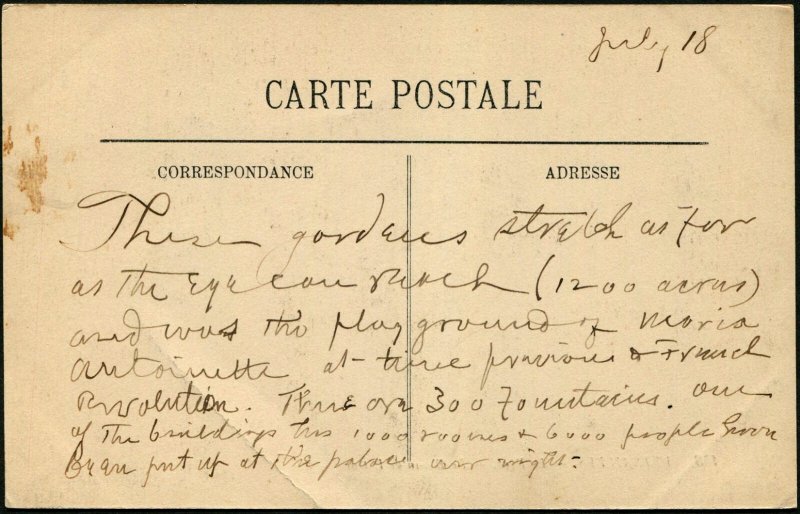 July 18
CARTE POSTALE
CORRESPONDANCE
ADRESSE
These gardens stretch as far
as the eye can reach (1200 acres)
and was the play ground of Maria
Antoinette at time previous to French
Revolution. There are 300 Fountains. One
of the buildings has 1000 rooms & 6000 people have
been put up at the palace over night.